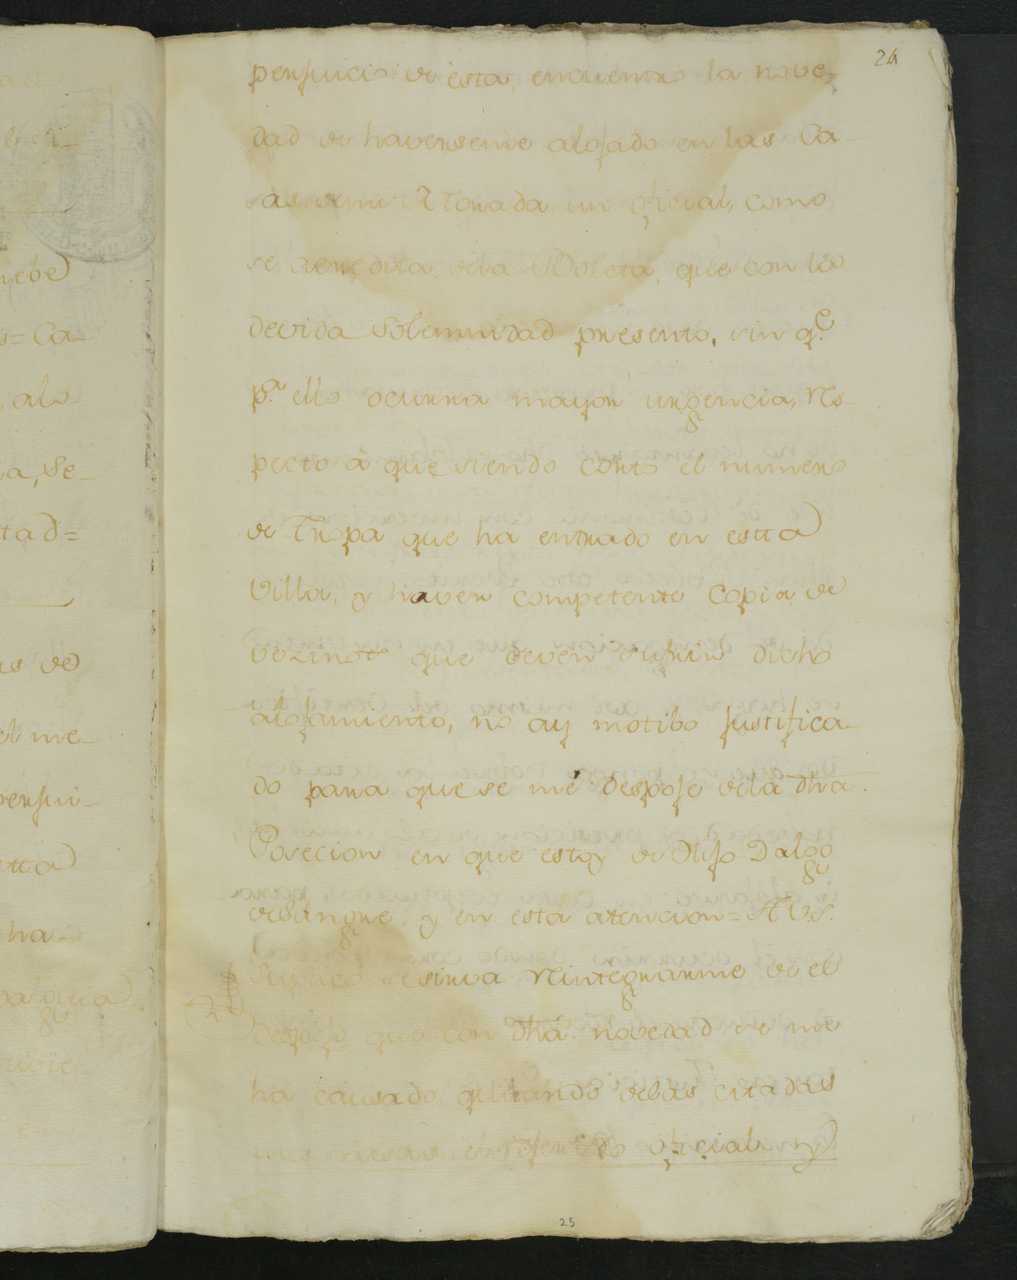 24
perjuicio de esta, encuentro la nove,
dad de haverseme alojado en las Ca-
sas de mi Morada un oficial, como
se acredita dela Voleta, que con la
devida Solemnidad presento, sin q.e
p.a ello ocurra mayor urgencia, Res-
pecto á que siendo corto el numero
de Tropa que ha entrado en estta
Villa, y haver competente Copia de
vezinos que deven sufrir dicho
alojamiento, no ay motibo justifica-
do para que se me despoje dela dha.
Posecion en que estoy de Hijo Dalgo
de sangre: y en esta atencion = A VS.
Suplico se sirva Reintegrarme de el
Despojo que con dha. novedad se me
ha causado, quitando delas citadas
mis casas el referido oficial
25